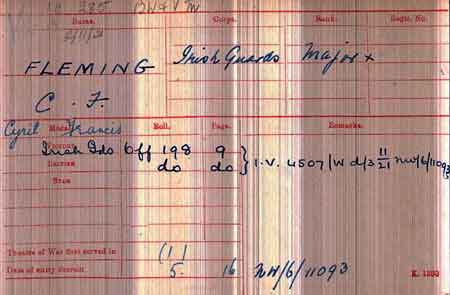 Name. Corps. Rank. Regtl. No.
FLEMING Irish Guards Major
C. F.
Cyril Francis
Medal. Roll. Page. Remarks.
Victory Irish Gds Off 198 9 } I.V. 4507/W d/3 11/21 NW/6/11093
British do do
Star
Theatre of War first served in (1)
Date of entry therein 5. 16 NW/6/11093
K. 1380